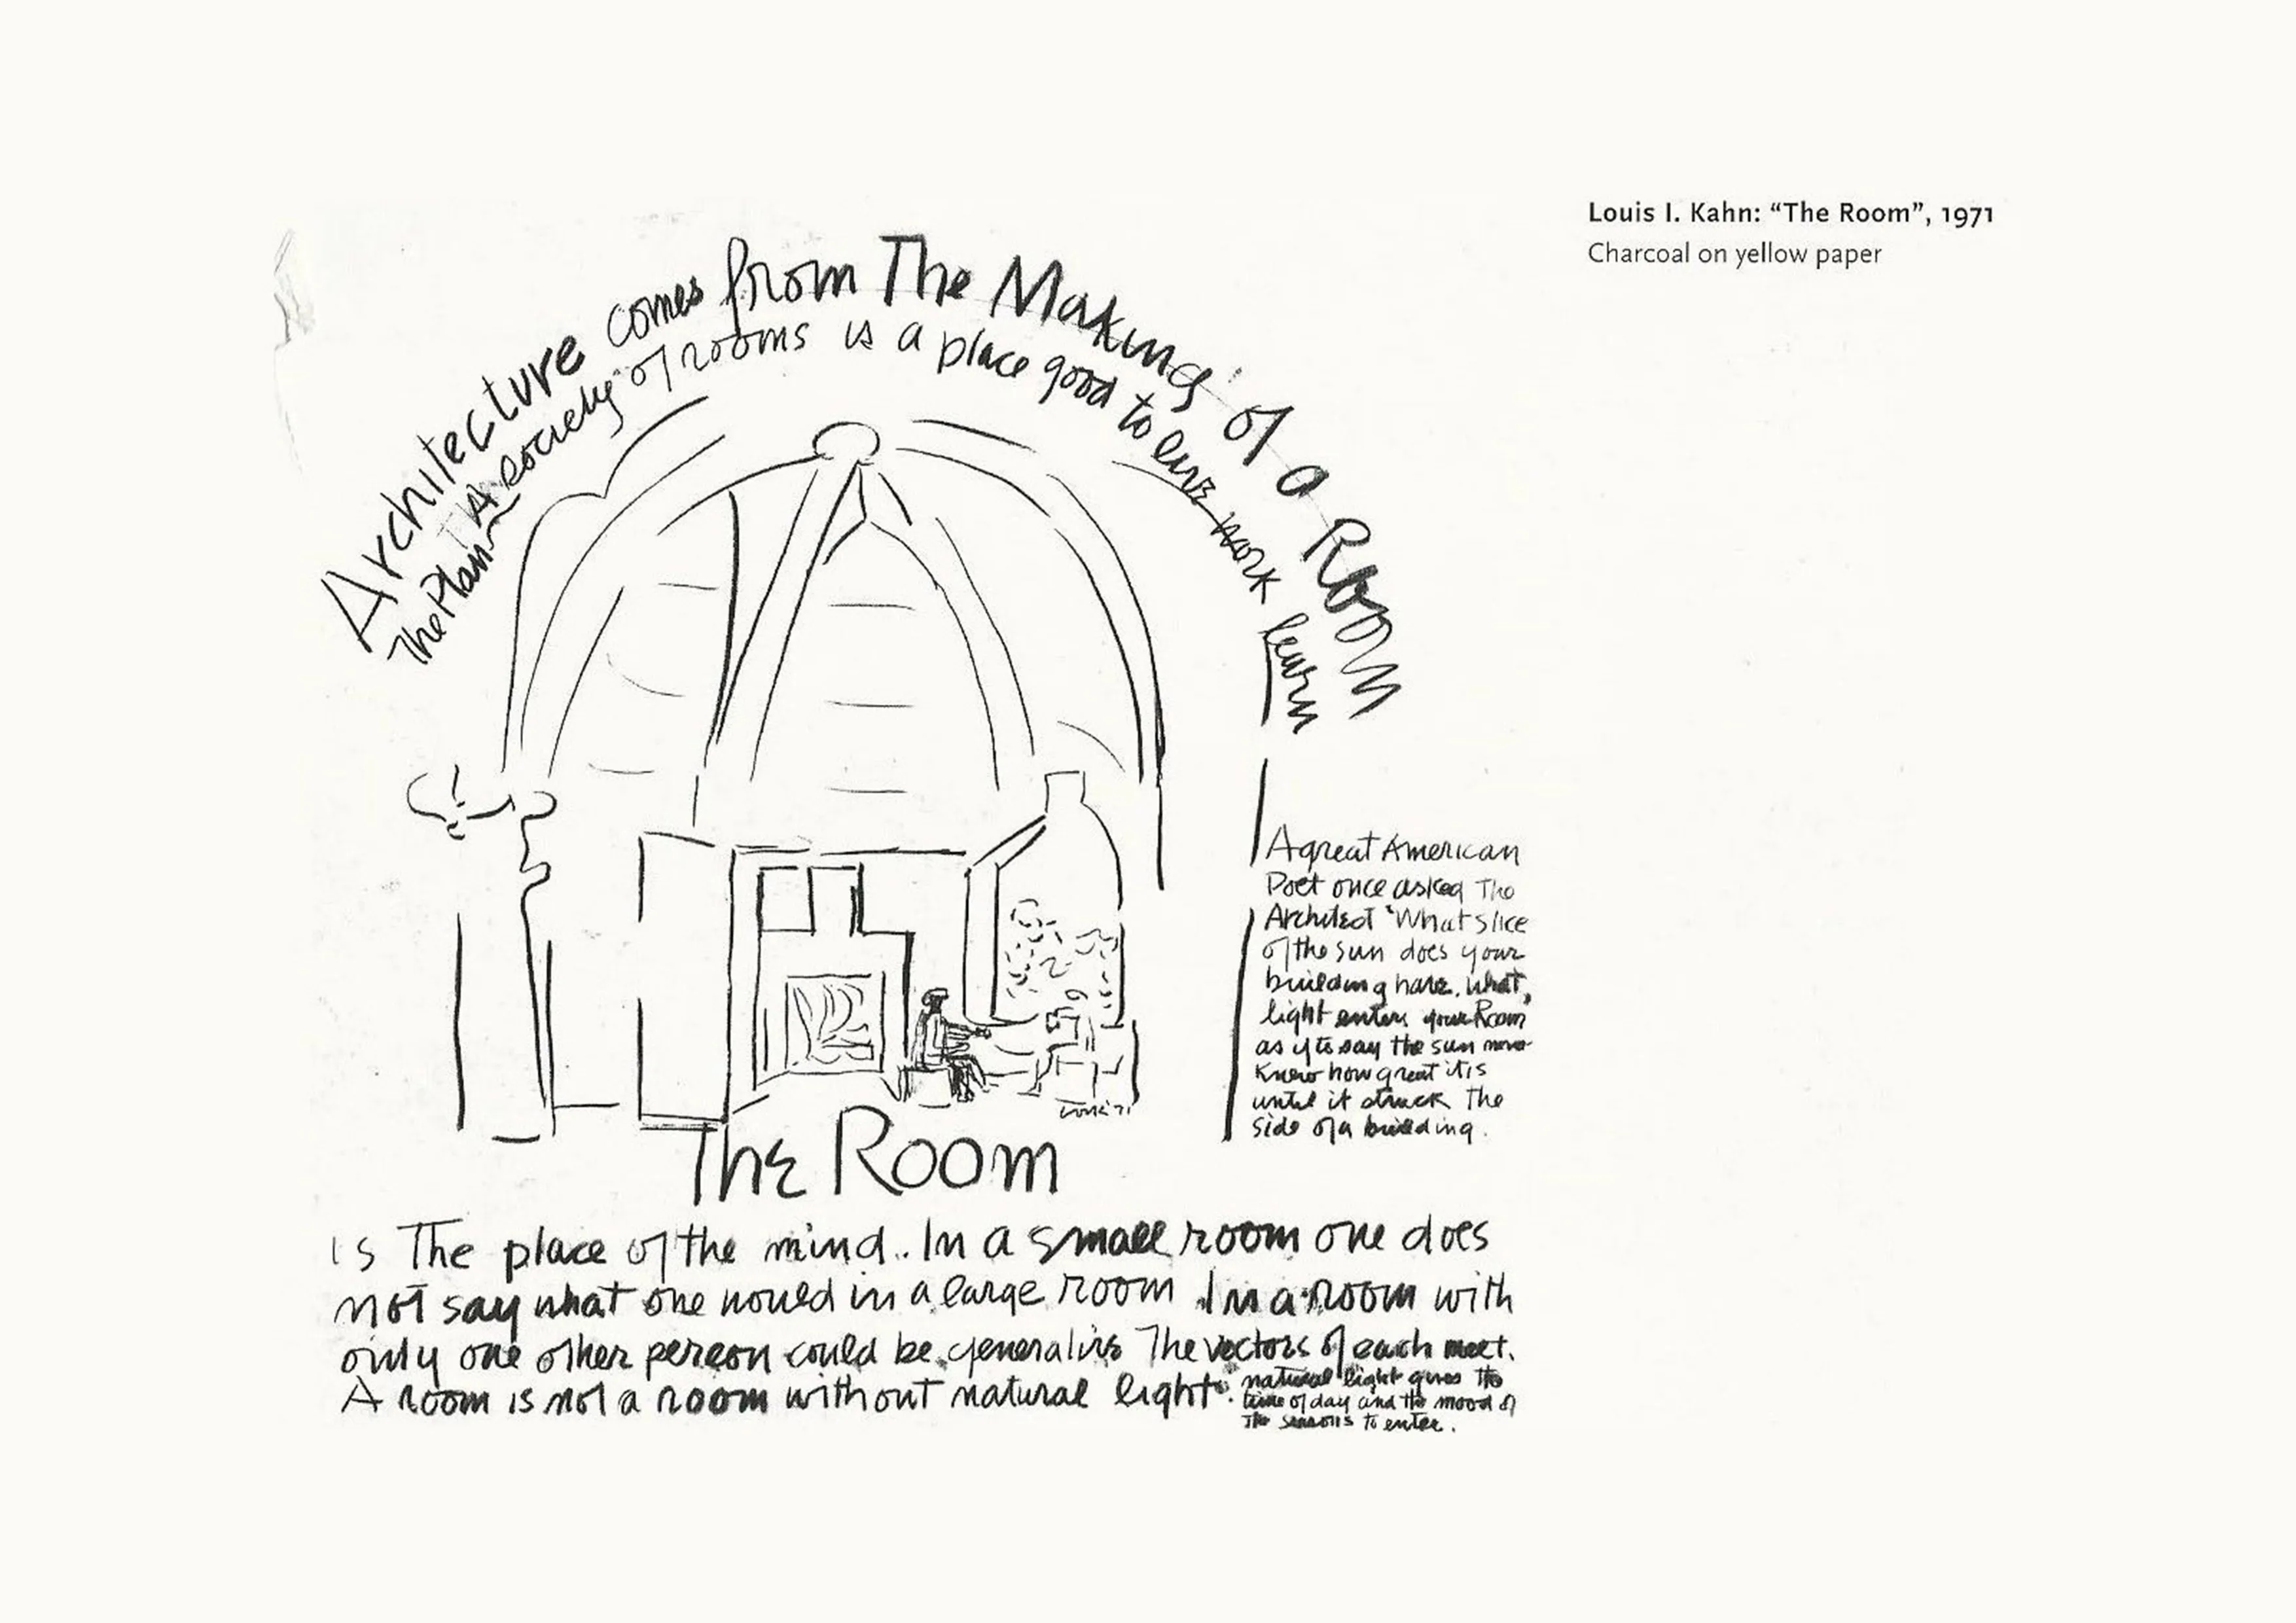 Louis I. Kahn: “The Room”, 1971
Charcoal on yellow paper
Architecture comes from The Making of a Room
The Plan A society of rooms is a place good to live work learn
A great American
Poet once asked The
Architect ‘What slice
of the sun does your
building have. what
light enters your Room
as if to say the sun never
knew how great it is
until it struck the
side of a building.
Lou K '71
The Room
is The place of the mind.. In a small room one does
not say what one would in a large room In a room with
only one other person could be generative The vectors of each meet.
A room is not a room without natural light.
natural light gives the
time of day and the mood of
The seasons to enter.